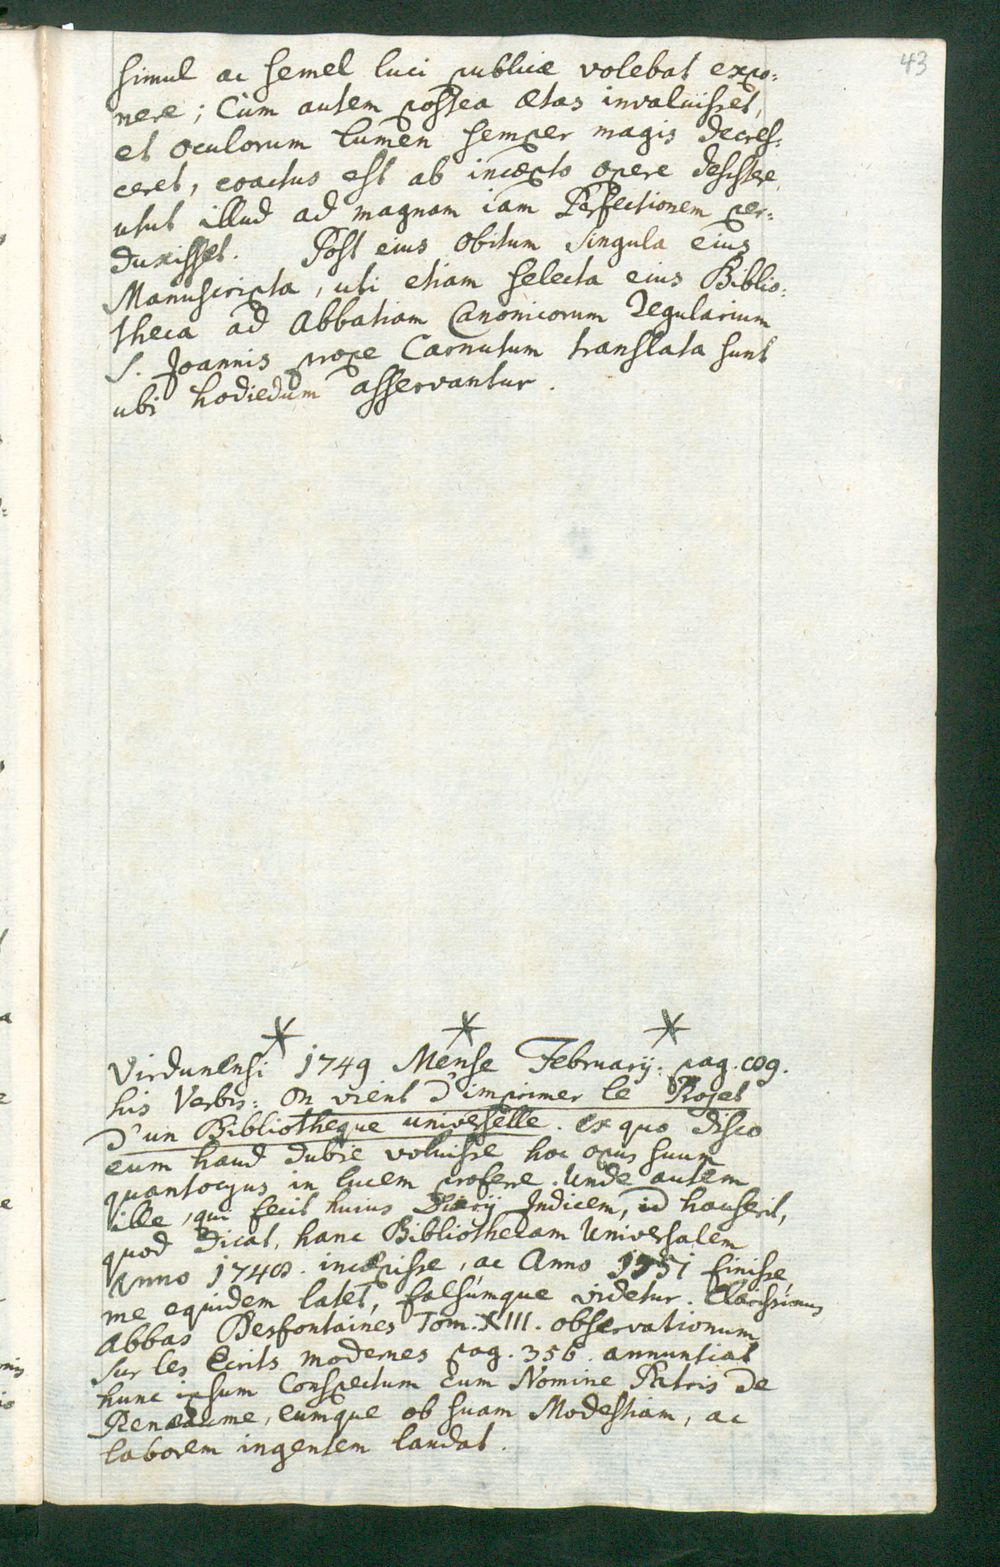 43
simul ac semel luci publicæ volebat expo:
nere; Cùm autem postea ætas invaluisset,
et oculorum lumen semper magis decres:
ceret, coactus est ab incæpto opere desistere,
utut illud ad magnam iam Perfectionem per:
duxisset. Post eius obitum singula eius
Manuscripta, uti etiam selecta eius Biblio:
theca ad Abbatiam Canonicorum Regularium
S. Joannis prope Carnutum translata sunt
ubi hodiedum asservantur.
* * *
Virdunensi 1749 Mense Februarij: pag. 89.
his Verbis: On vient d'imprimer le Projet
d'un Bibliotheque universelle. ex quo disco
eum haud dubie voluisse hoc opus suum
quantocyus in lucem proferre. Unde autem
ille, qui fecit huius Diarij Indicem, id hauserit,
quod dicat, hanc Bibliothecam Universalem
Anno 1748. incæpisse, ac Anno 1751 finisse,
me equidem latet, falsúmque videtur. Clarissimus
Abbas Desfontaines Tom. XIII. observationum
sur les Ecrits modernes pag. 356. annuntiat
hunc ipsum Conspectum cum Nomine Patris de
Reneaume, eumque ob suam Modestiam, ac
laborem ingentem laudat.